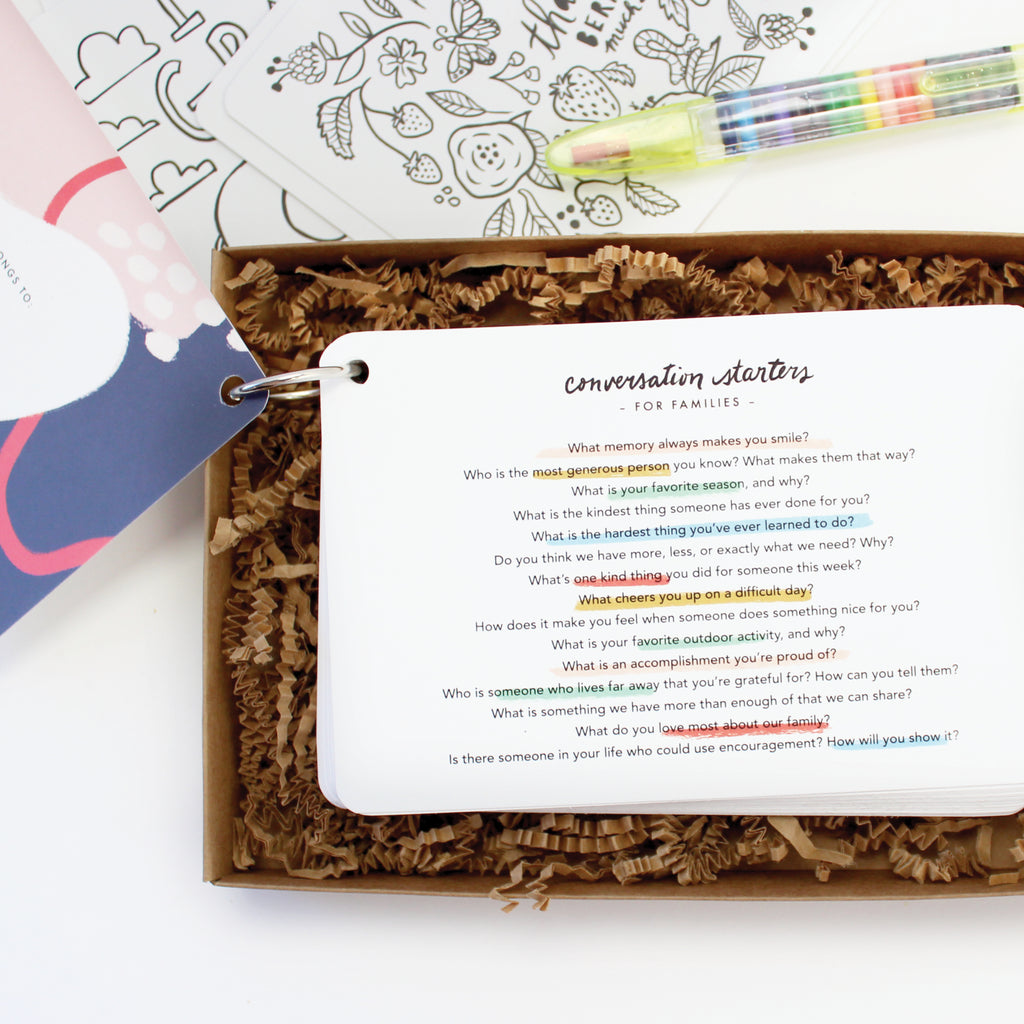 tha
BER
much
ONGS TO:
conversation starters
- FOR FAMILIES -
What memory always makes you smile?
Who is the most generous person you know? What makes them that way?
What is your favorite season, and why?
What is the kindest thing someone has ever done for you?
What is the hardest thing you've ever learned to do?
Do you think we have more, less, or exactly what we need? Why?
What's one kind thing you did for someone this week?
What cheers you up on a difficult day?
How does it make you feel when someone does something nice for you?
What is your favorite outdoor activity, and why?
What is an accomplishment you're proud of?
Who is someone who lives far away that you're grateful for? How can you tell them?
What is something we have more than enough of that we can share?
What do you love most about our family?
Is there someone in your life who could use encouragement? How will you show it?